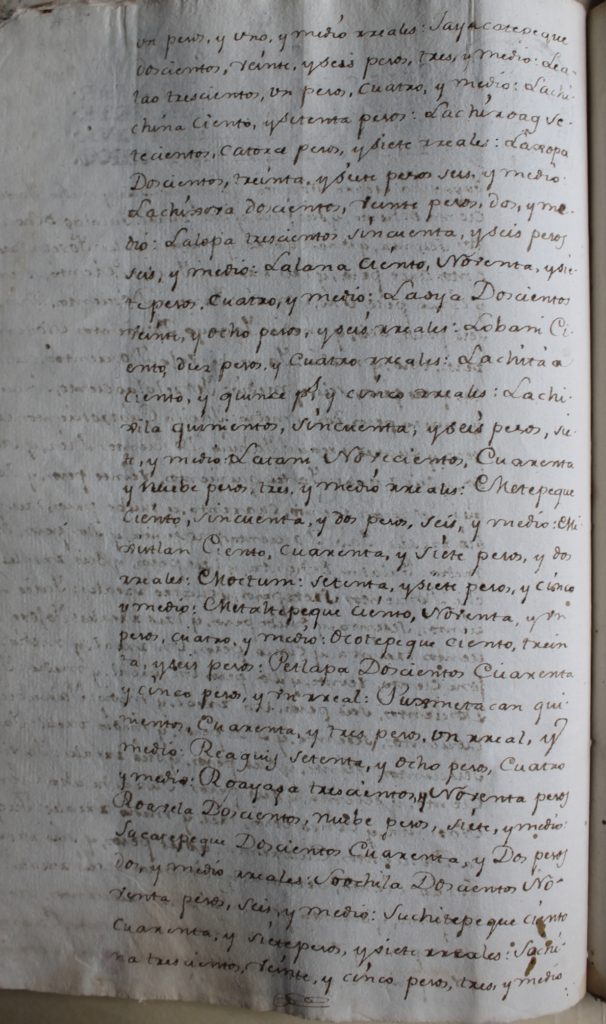 un pesos, y uno, y medio rreales: Sayacatepeque
Doscientos, Veinte, y seis pesos, tres, y medio: Lea-
lao trescientos, un pesos, Cuatro, y medio: Lachi-
china Ciento, y setenta pesos: Lachiroag Se-
tecientos, Catorce pesos, y siete rreales: Laxopa
Doscientos, treinta, y siete pesos seis, y medio:
Lachixova doscientos, Veinte pesos, dos, y me-
dio: Lalopa trescientos, sincuenta, y seis pesos
seis, y medio: Lalana Ciento, Noventa, y sie-
te pesos. Cuatro, y medio: Lasya Doscientos
Veinte, y ocho pesos, y seis rreales: Lobani Ci-
ento, diez pesos, y Cuatro rreales: Lachitaa
Ciento, y quince ps, y cinco rreales: Lachi-
vila quinientos, sincuenta, y seis pesos, sie-
te, y medio: Latani Novecientos, Cuarenta
y Nuebe pesos, tres, y medio rreales: Metepeque
Ciento, sincuenta, y dos pesos, seis, y medio: Mi-
xitlan Ciento, Cuarenta, y siete pesos, y dos
rreales: Moctum: setenta, y siete pesos, y cinco
y medio: Metaltepeque Ciento, Noventa, y un
pesos, Cuatro, y medio: Ocotepeque Ciento, trein-
ta, y seis pesos: Petlapa Doscientos Cuarenta
y cinco pesos, y un rreal: Puxmetacan qui-
nientos, Cuarenta, y tres pesos, un rreal, y
medio: Reagui setenta, y ocho pesos, Cuatro
y medio: Roayaga trescientos, y Noventa pesos
Doscientos, Nuebe pesos, siete, y medio:
Sacatepeque Doscientos Cuarenta, y Dos pesos
dos, y medio rreales: Soochila Doscientos No-
venta pesos, seis, y medio: Suchitepeque ciento
Cuarenta, y siete pesos, y siete rreales: Sachi-
na trescientos, Veinte, y cinco pesos, tres, y medio